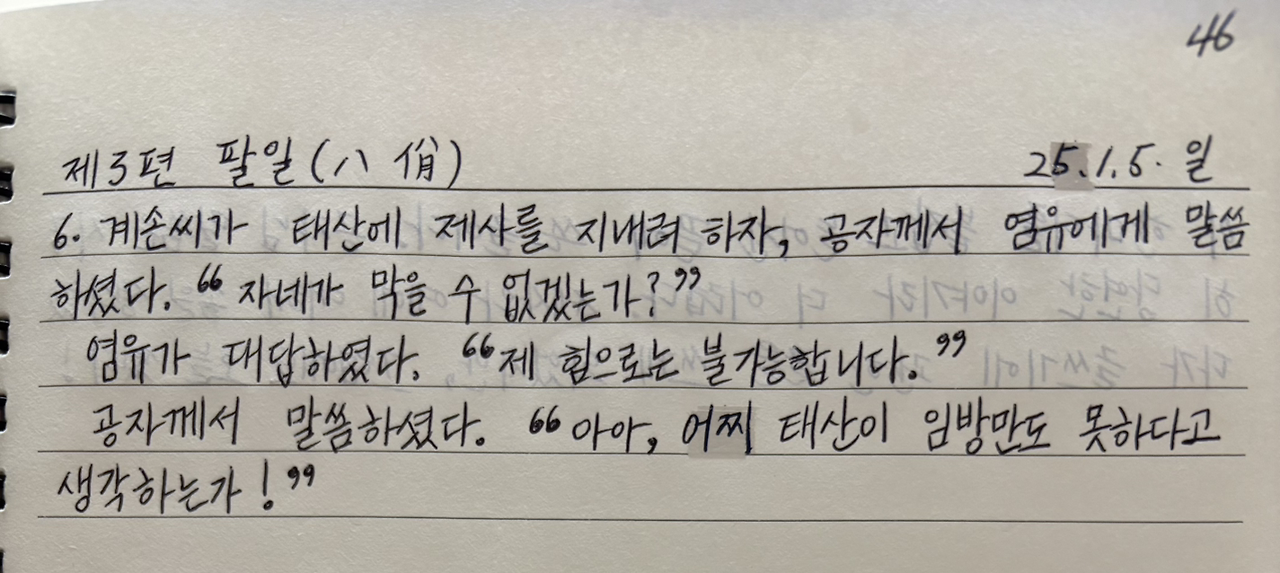 46
제3편 팔일(八佾) 25.1.5. 일
6. 계손씨가 태산에 제사를 지내려 하자, 공자께서 염유에게 말씀
하셨다. “자네가 막을 수 없겠는가?”
염유가 대답하였다. “제 힘으로는 불가능합니다.”
공자께서 말씀하셨다. “아아, 어찌 태산이 임방만도 못하다고
생각하는가!”